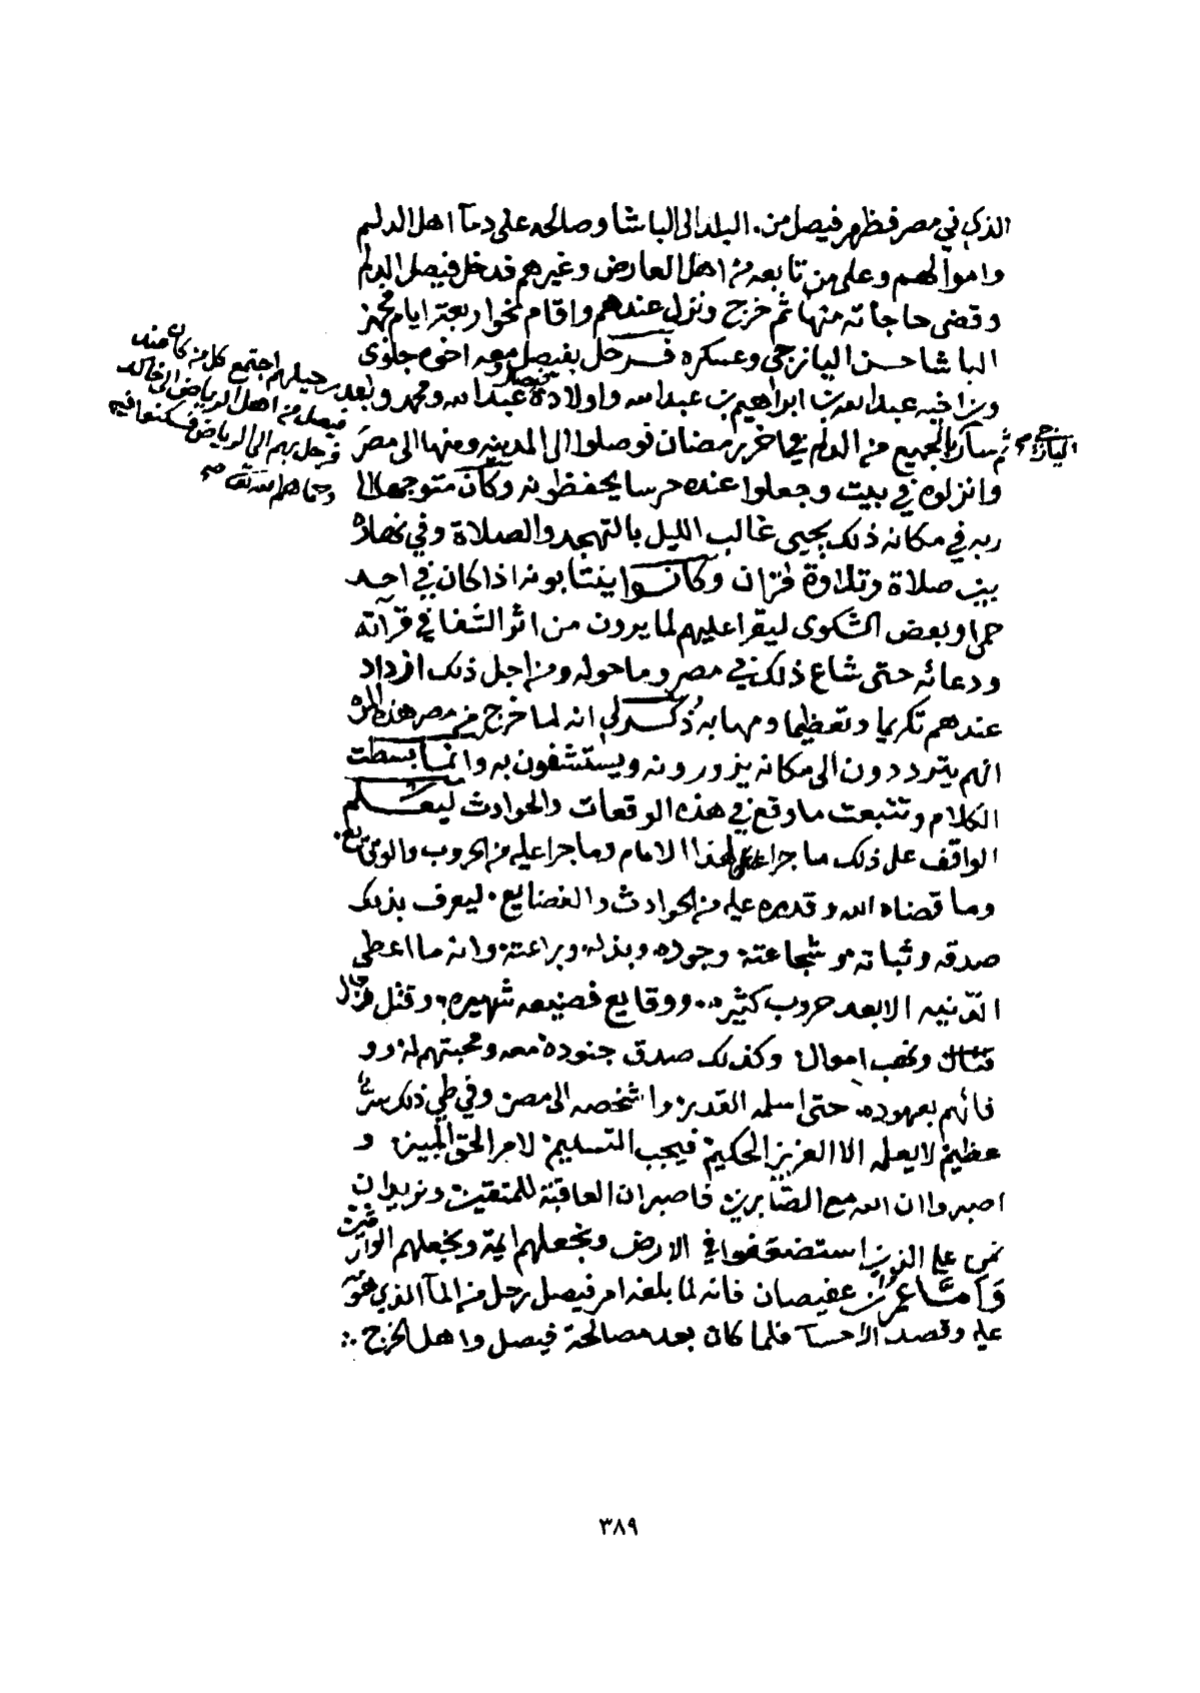 الذي في مصر فظهر فيصل من البلد الى الباشا وصالحه على دمآ اهل الدلم
واموالهم وعلى من تابعه من اهل العارض وغيرهم فدخل فيصل الدلم
وقضى حاجاته منها ثم خرج ونزل عندهم واقام نحو اربعة ايام فجهز
الباشا حسن اليازجي وعسكره فرحل بفيصل ومعه اخوه جلوي
وبن اخيه عبدالله بن ابراهيم بن عبدالله واولاده عبدالله ومحمد
وبعد رحيلهم اجتمع كل من كان عند
فيصل من اهل الرياض الى خالد
فرحل بهم الى الرياض فسكنوا فيه
وحماهم الله تعالى صح
ثم سار بالجميع من الدلم في اخر رمضان فوصلوا الى المدينه ومنها الى مصر
اليازجي
وانزلوه في بيت وجعلوا عنده حرسا يحفظونه وكان متوجها الى
ربه في مكانه ذلك يحيي غالب الليل بالتهجد والصلاة وفي نهاره
بين صلاة وتلاوة قران وكانوا ينتابونه اذا كان في احد
حمى او بعض الشكوى ليقرا عليهم لما يرون من اثر الشفا في قرآته
ودعائه حتى شاع ذلك في مصر وما حوله ومن اجل ذلك ازداد
عندهم تكريما وتعظيما ومهابه ذكر لي انه لما خرج من مصر هذه المرة
انهم يترددون الى مكانه يزورونه ويستشفون به وانما بسطت
الكلام وتتبعت ما وقع في هذه الوقعات والحوادث ليعلم
الواقف على ذلك ما جرا لهذا الامام وما جرا عليه من الحروب والوقايع
وما قضاه الله وقدره عليه من الحوادث والفضايع ليعرف بذلك
صدقه وثباته وشجاعته وجوده وبذله وبراعته وانه ما اعطى
الدنيه الا بعد حروب كثيره ووقايع فضيعه شهيره وقتل رجال
ونهب اموال وكذلك صدق جنوده معه ومحبتهم له و
فائهم بعهوده حتى اسلمه القدير واشخصه الى مصر وفي طي ذلك سر
عظيم لا يعلمه الا العزيز الحكيم فيجب التسليم لامر الحق المبين و
اصبروا ان الله مع الصابرين فاصبر ان العاقبة للمتقين ونريد ان
نمن على الذين استضعفوا في الارض ونجعلهم ايمة ونجعلهم الوارثين
وامّا عمر بن عفيصان فانه لما بلغه امر فيصل رحل من المآ الذي هو
عليه وقصد الاحسآ فلما كان بعد مصالحة فيصل واهل الخرج
٣٨٩